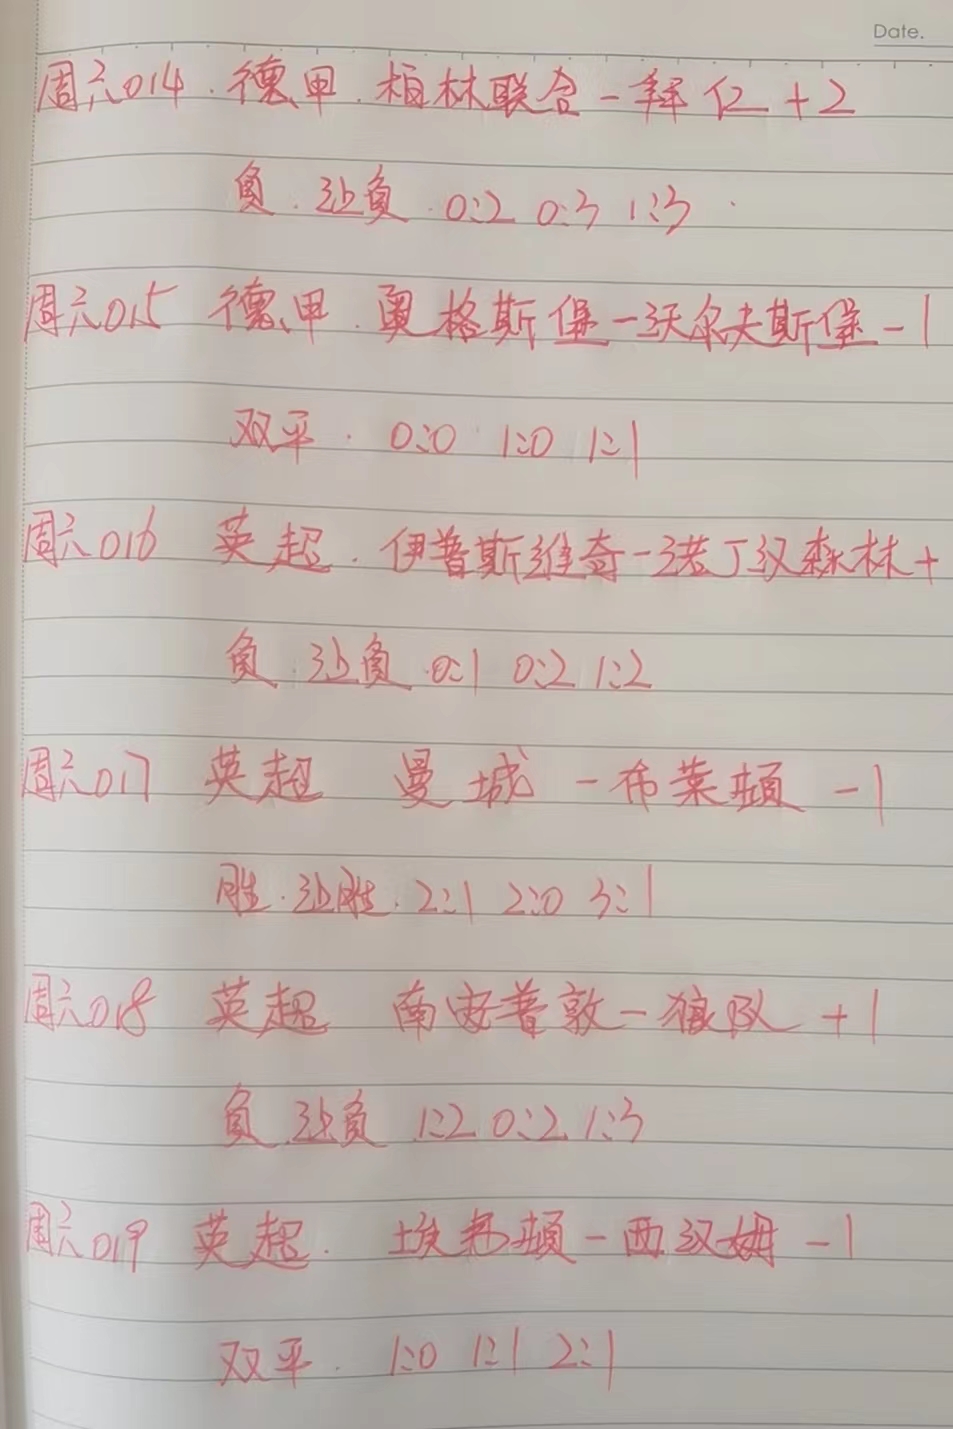 Date.
周六014.德甲.柏林联合-拜仁+2
负.让负.0:2 0:3 1:3
周六015 德甲.奥格斯堡-沃尔夫斯堡-1
双平.0:0 1:0 1:1
周六016 英超.伊普斯维奇-诺丁汉森林+
负.让负.0:1 0:2 1:2
周六017 英超 曼城-布莱顿-1
胜.让胜.2:1 2:0 3:1
周六018 英超 南安普敦-狼队+1
负.让负 1:2 0:2 1:3
周六019 英超.埃弗顿-西汉姆-1
双平.1:0 1:1 2:1